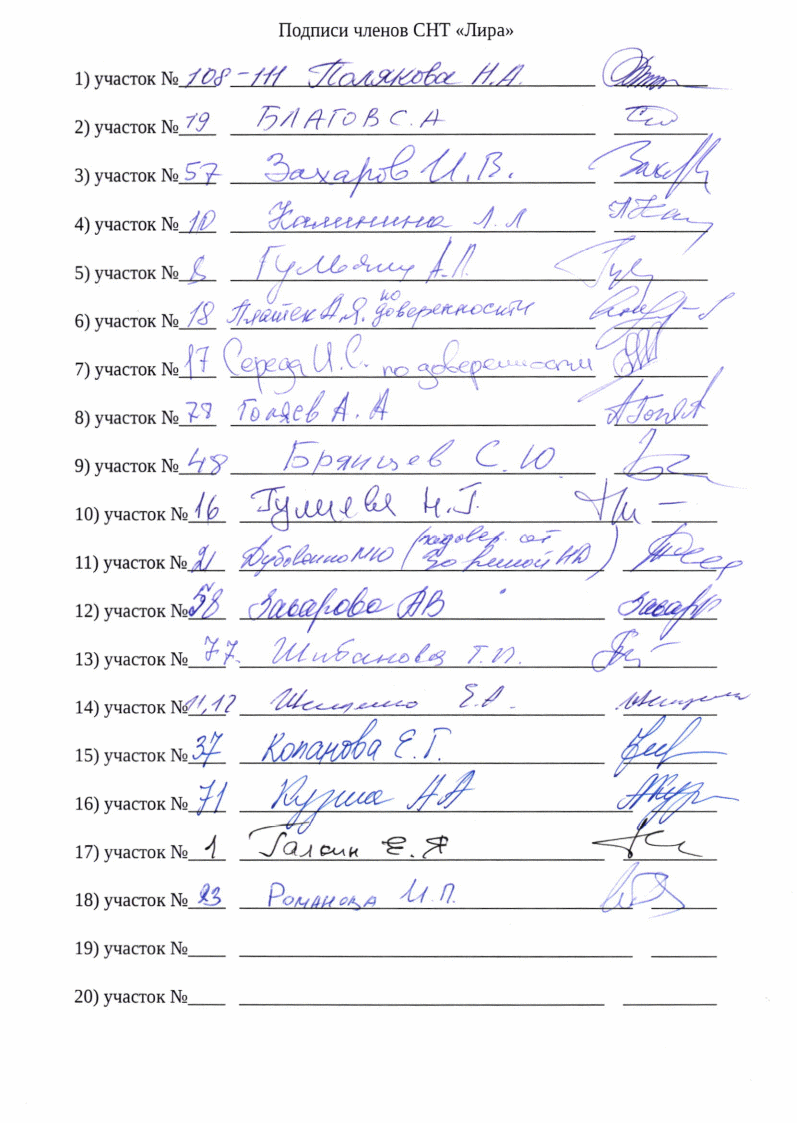 Подписи членов СНТ «Лира»
1) участок № 108-111 Полякова Н.А.
2) участок № 19 БЛАГОВ С.А
3) участок № 57 Захаров И.В.
4) участок № 10 Калинина Л.Л
5) участок № 8 А.П.
6) участок № 18 Платек А.Я. по доверенности
7) участок № 17 Середа И.С. по доверенности
8) участок № 78 Голяев А.А
9) участок № 48 Брянцев С.Ю
10) участок № 16 Гулиева Н.Г.
11) участок № 21 (по довер. от
12) участок № 58 Захарова АВ
13) участок № 77. Шибанова Т.П.
14) участок № 11,12 Е.А.
15) участок № 37 Копанова Е.Г.
16) участок № 71 Кузина НА
17) участок № 1 Галкин Е.Я
18) участок № 23 РОМАНОВА И.П.
19) участок №
20) участок №